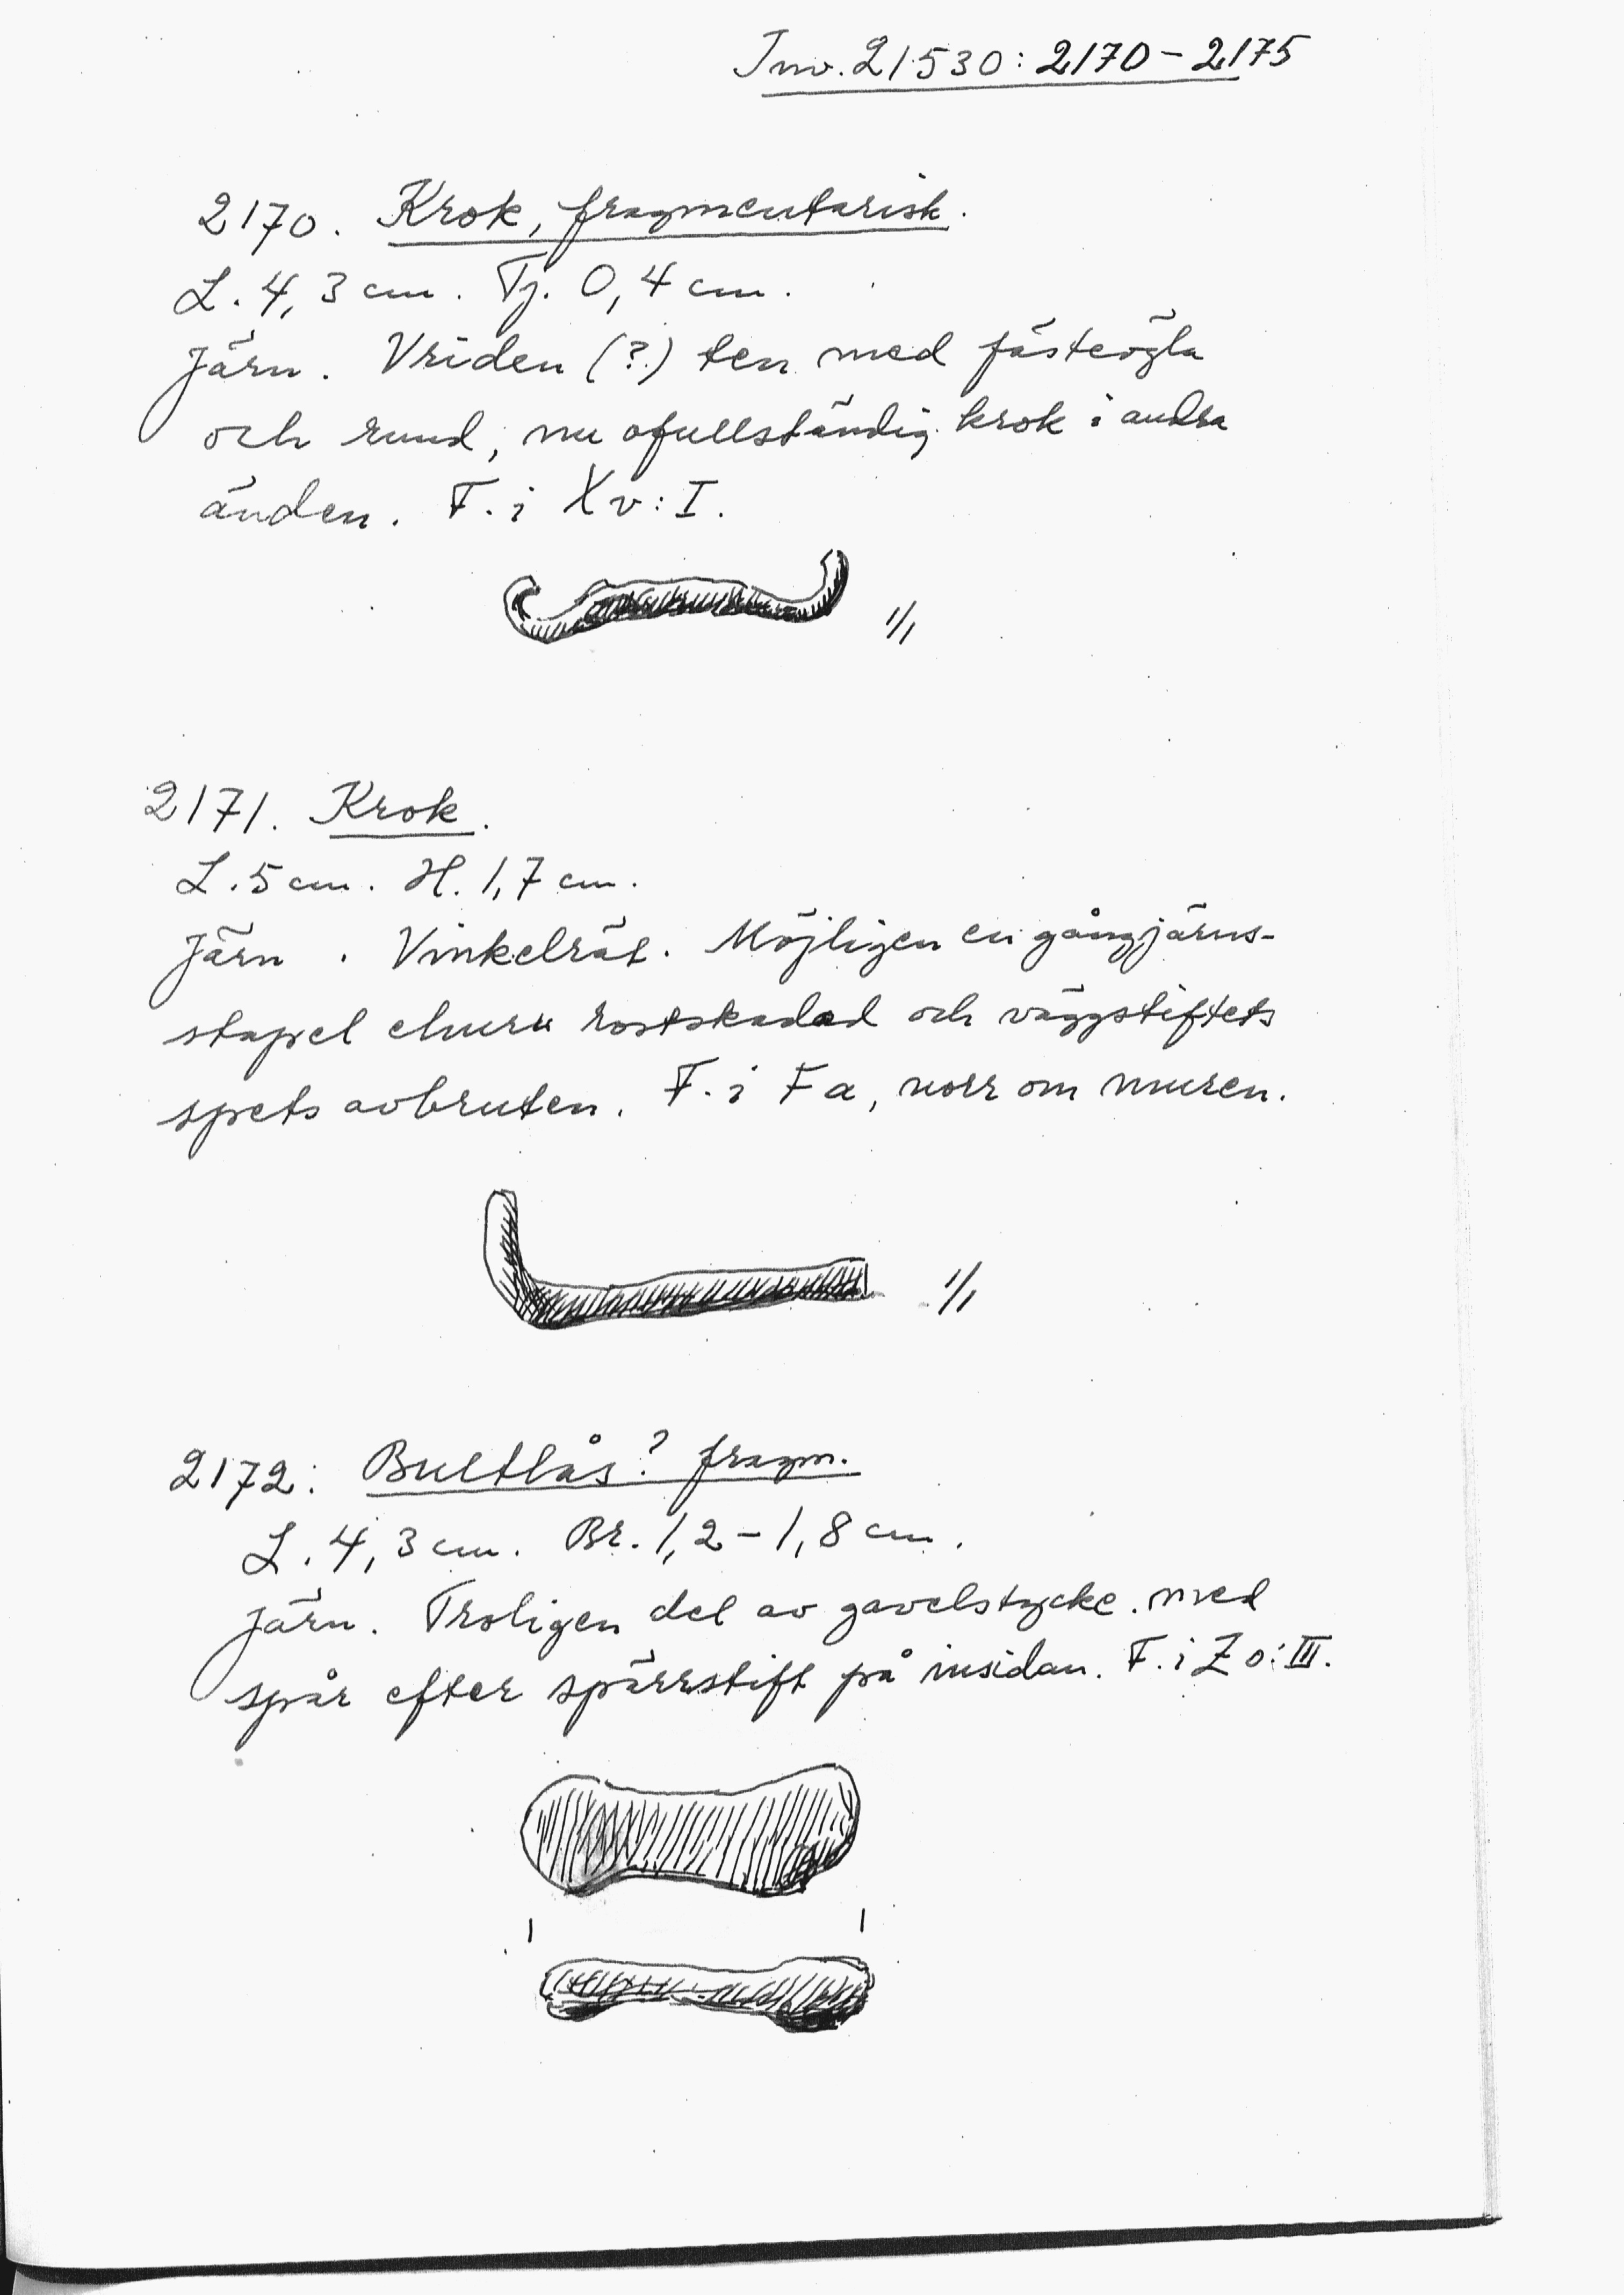 Inv. 21530: 2170-2175
2170. Krok, fragmentarisk.
L. 4,3 cm. Tj. 0,4 cm.
Järn. Vriden (?) ten med fästeögla
och rund, nu ofullständig krok i andra
änden. F. i Xv: I.
1/1
2171. Krok.
L. 5 cm. H. 1,7 cm.
Järn. Vinkelrät. Möjligen en gångjärns-
stapel ehuru rostskadad och väggstiftets
spets avbruten. F. i Fa, norr om muren.
1/1
2172: Bultlås? fragm.
L. 4,3 cm. Br. 1,2-1,8 cm.
Järn. Troligen del av gavelstycke med
spår efter spärrstift på insidan. F. i Zo: III.